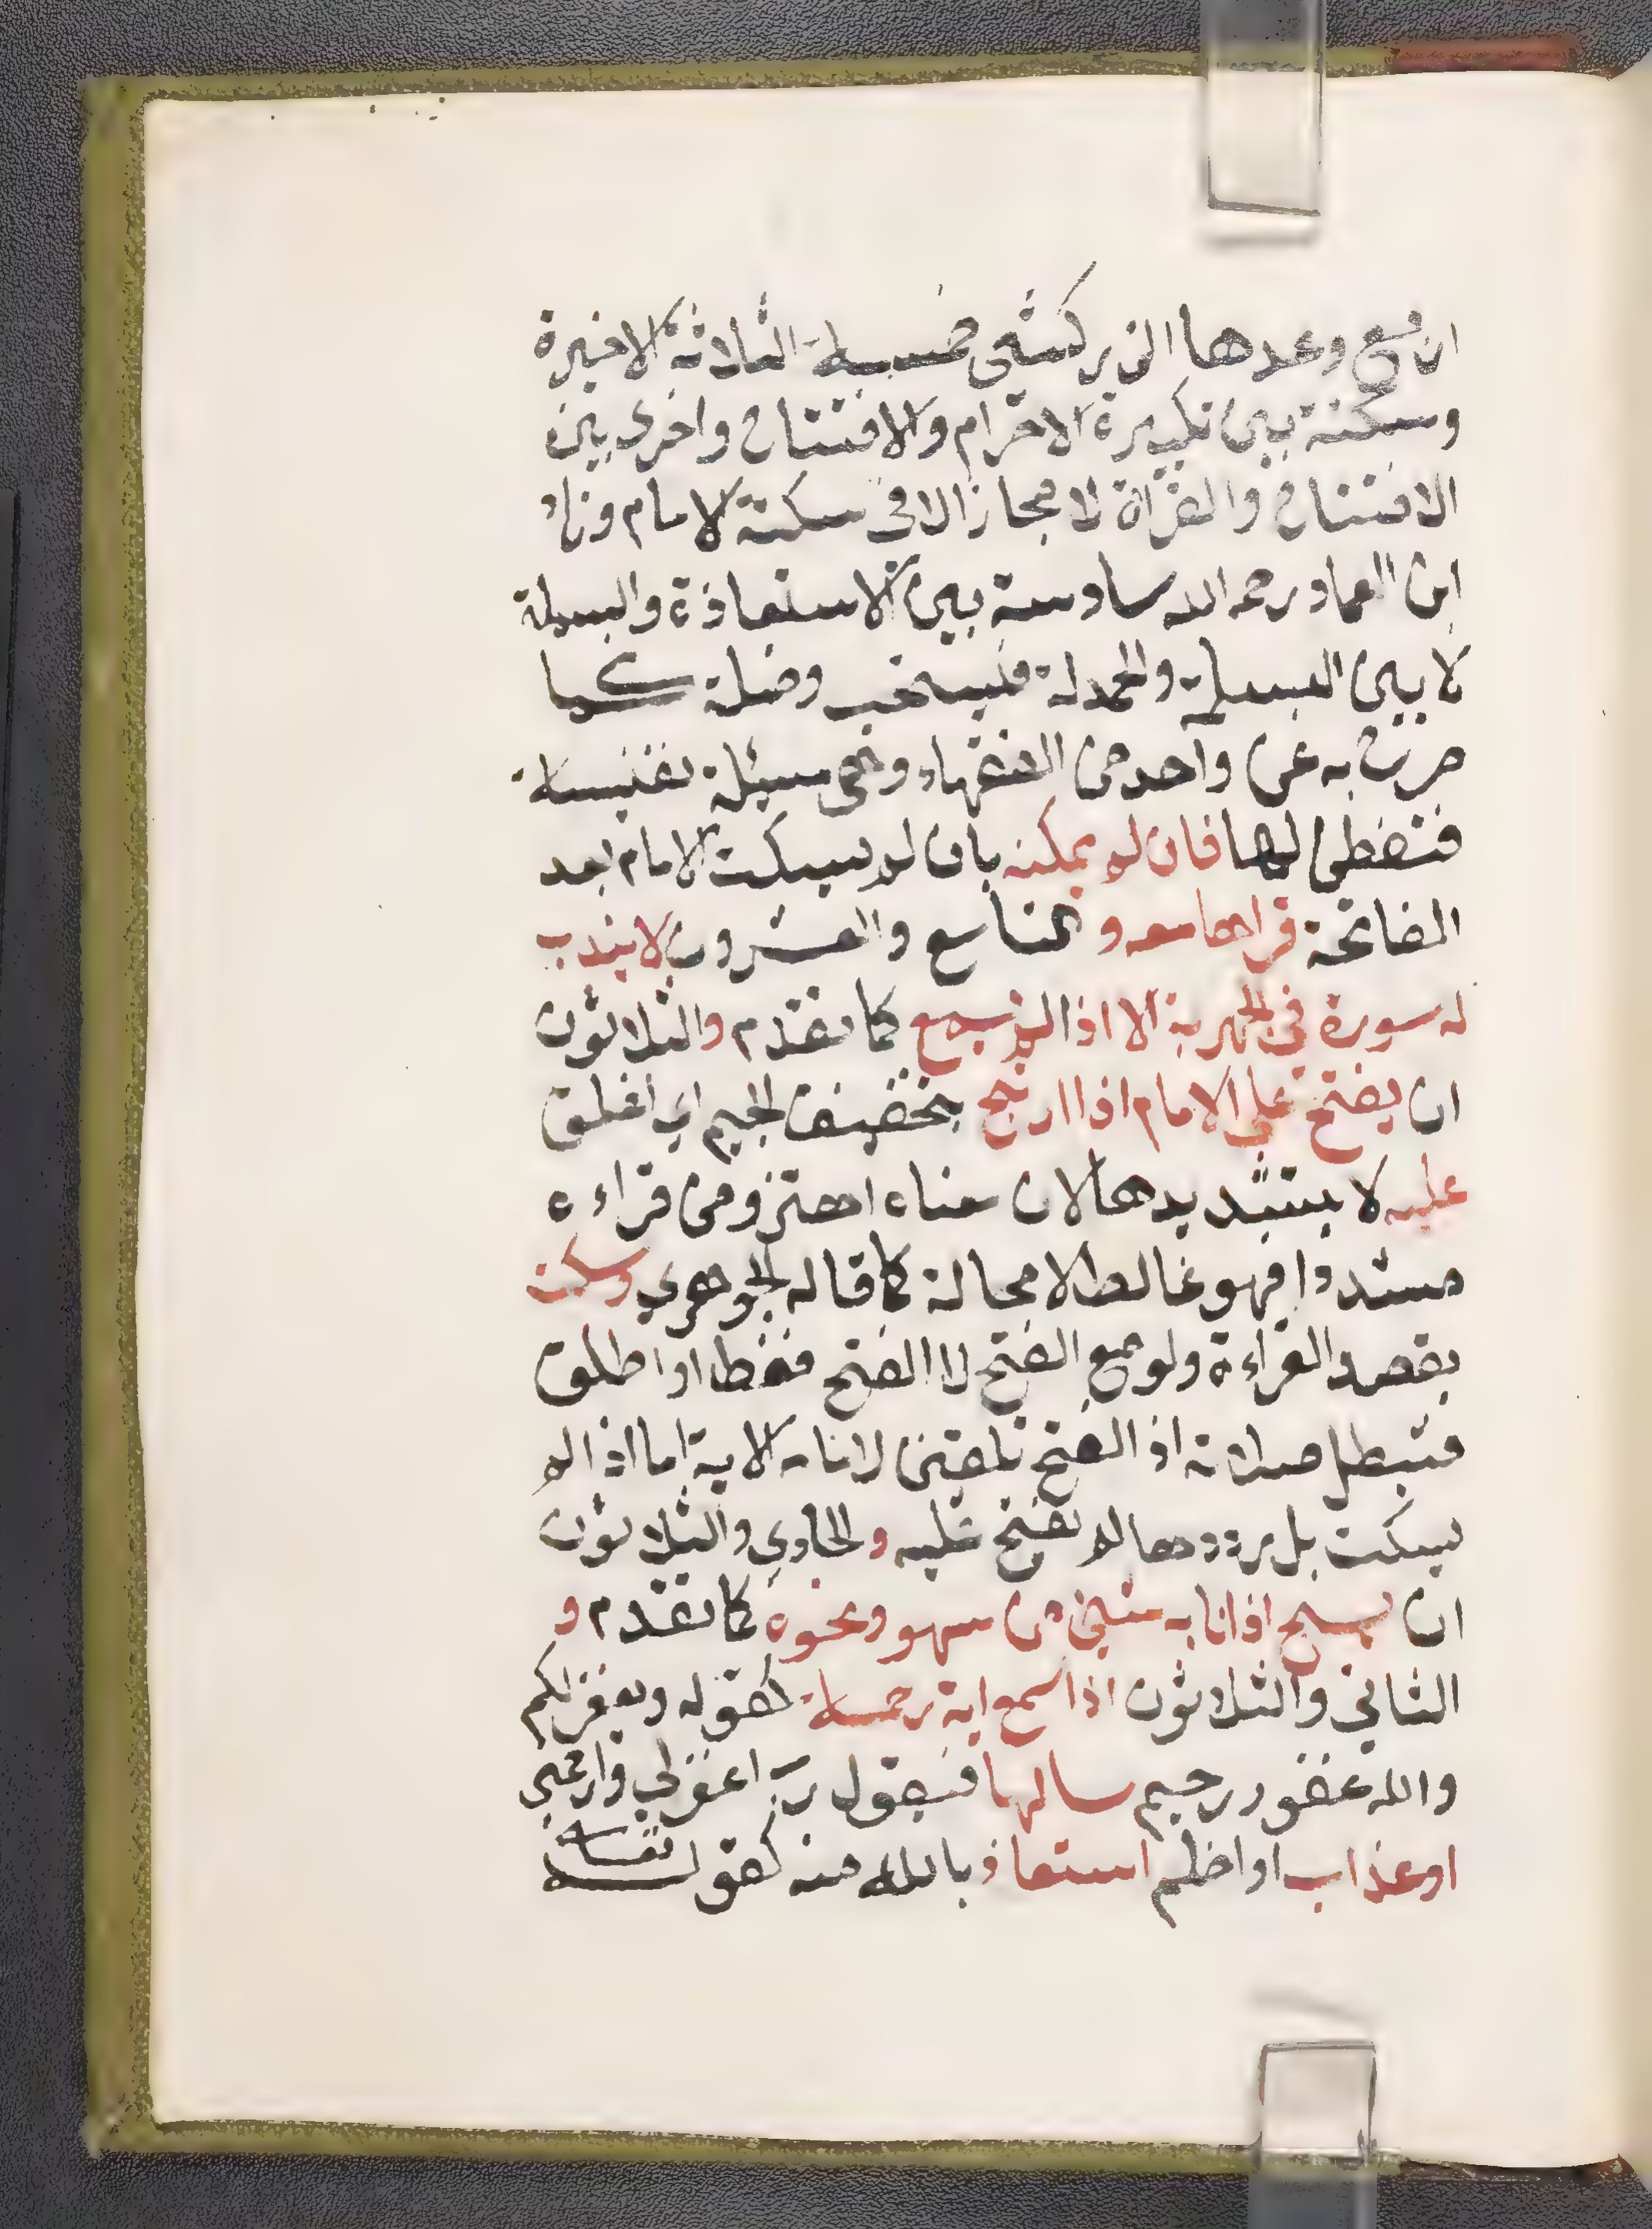 اربع وعدها الزركشي خمسة الثلاثة الاخيرة
وسكتة بين تكبيرة الاحرام والافتتاح واخرى بين
الافتتاح والقراة لا مجاز الا في سكتة الامام وزاد
ابن العماد رحمه الله سادسة بين الاستعاذة والبسملة
لا بين البسملة والحمدلة فليستحب وصله كما
صرت به عن واحد من الفقهاء وهي مسئلة نفيسة
فتفطن لها فان لم يمكنه بان لم يسكت الامام بعد
الفاتحة قراها معه و التاسع والعشرون لا يندب
له سورة في الجهرية الا اذا لم يسمع كما تقدم والثلاثون
ان يفتح على الامام اذا ارتج بتخفيف الجيم اي اغلق
عليه لا بتشديدها لان معناه اهتز ومن قراءه
مشددا فهو غالط لا محالة كما قاله الجوهري وسكت
بقصد القراءة ولو مع الفتح لا الفتح فقط او اطلق
فتبطل صلاته اذ الفتح تلقين لانامة الاية اما اذا لم
يسكت بل يرددها لم يفتح عليه والحادي والثلاثون
ان يسبح اذا نابه شيئ من سهو ونحوه كما تقدم و
الثاني والثلاثون اذا سمع اية رحمة كقوله ويغفر لكم
والله غفور رحيم سالها فيقول رب اغفر لي وارحمني
او عذاب او اظلم استعاذ بالله منه كقوله تعالى